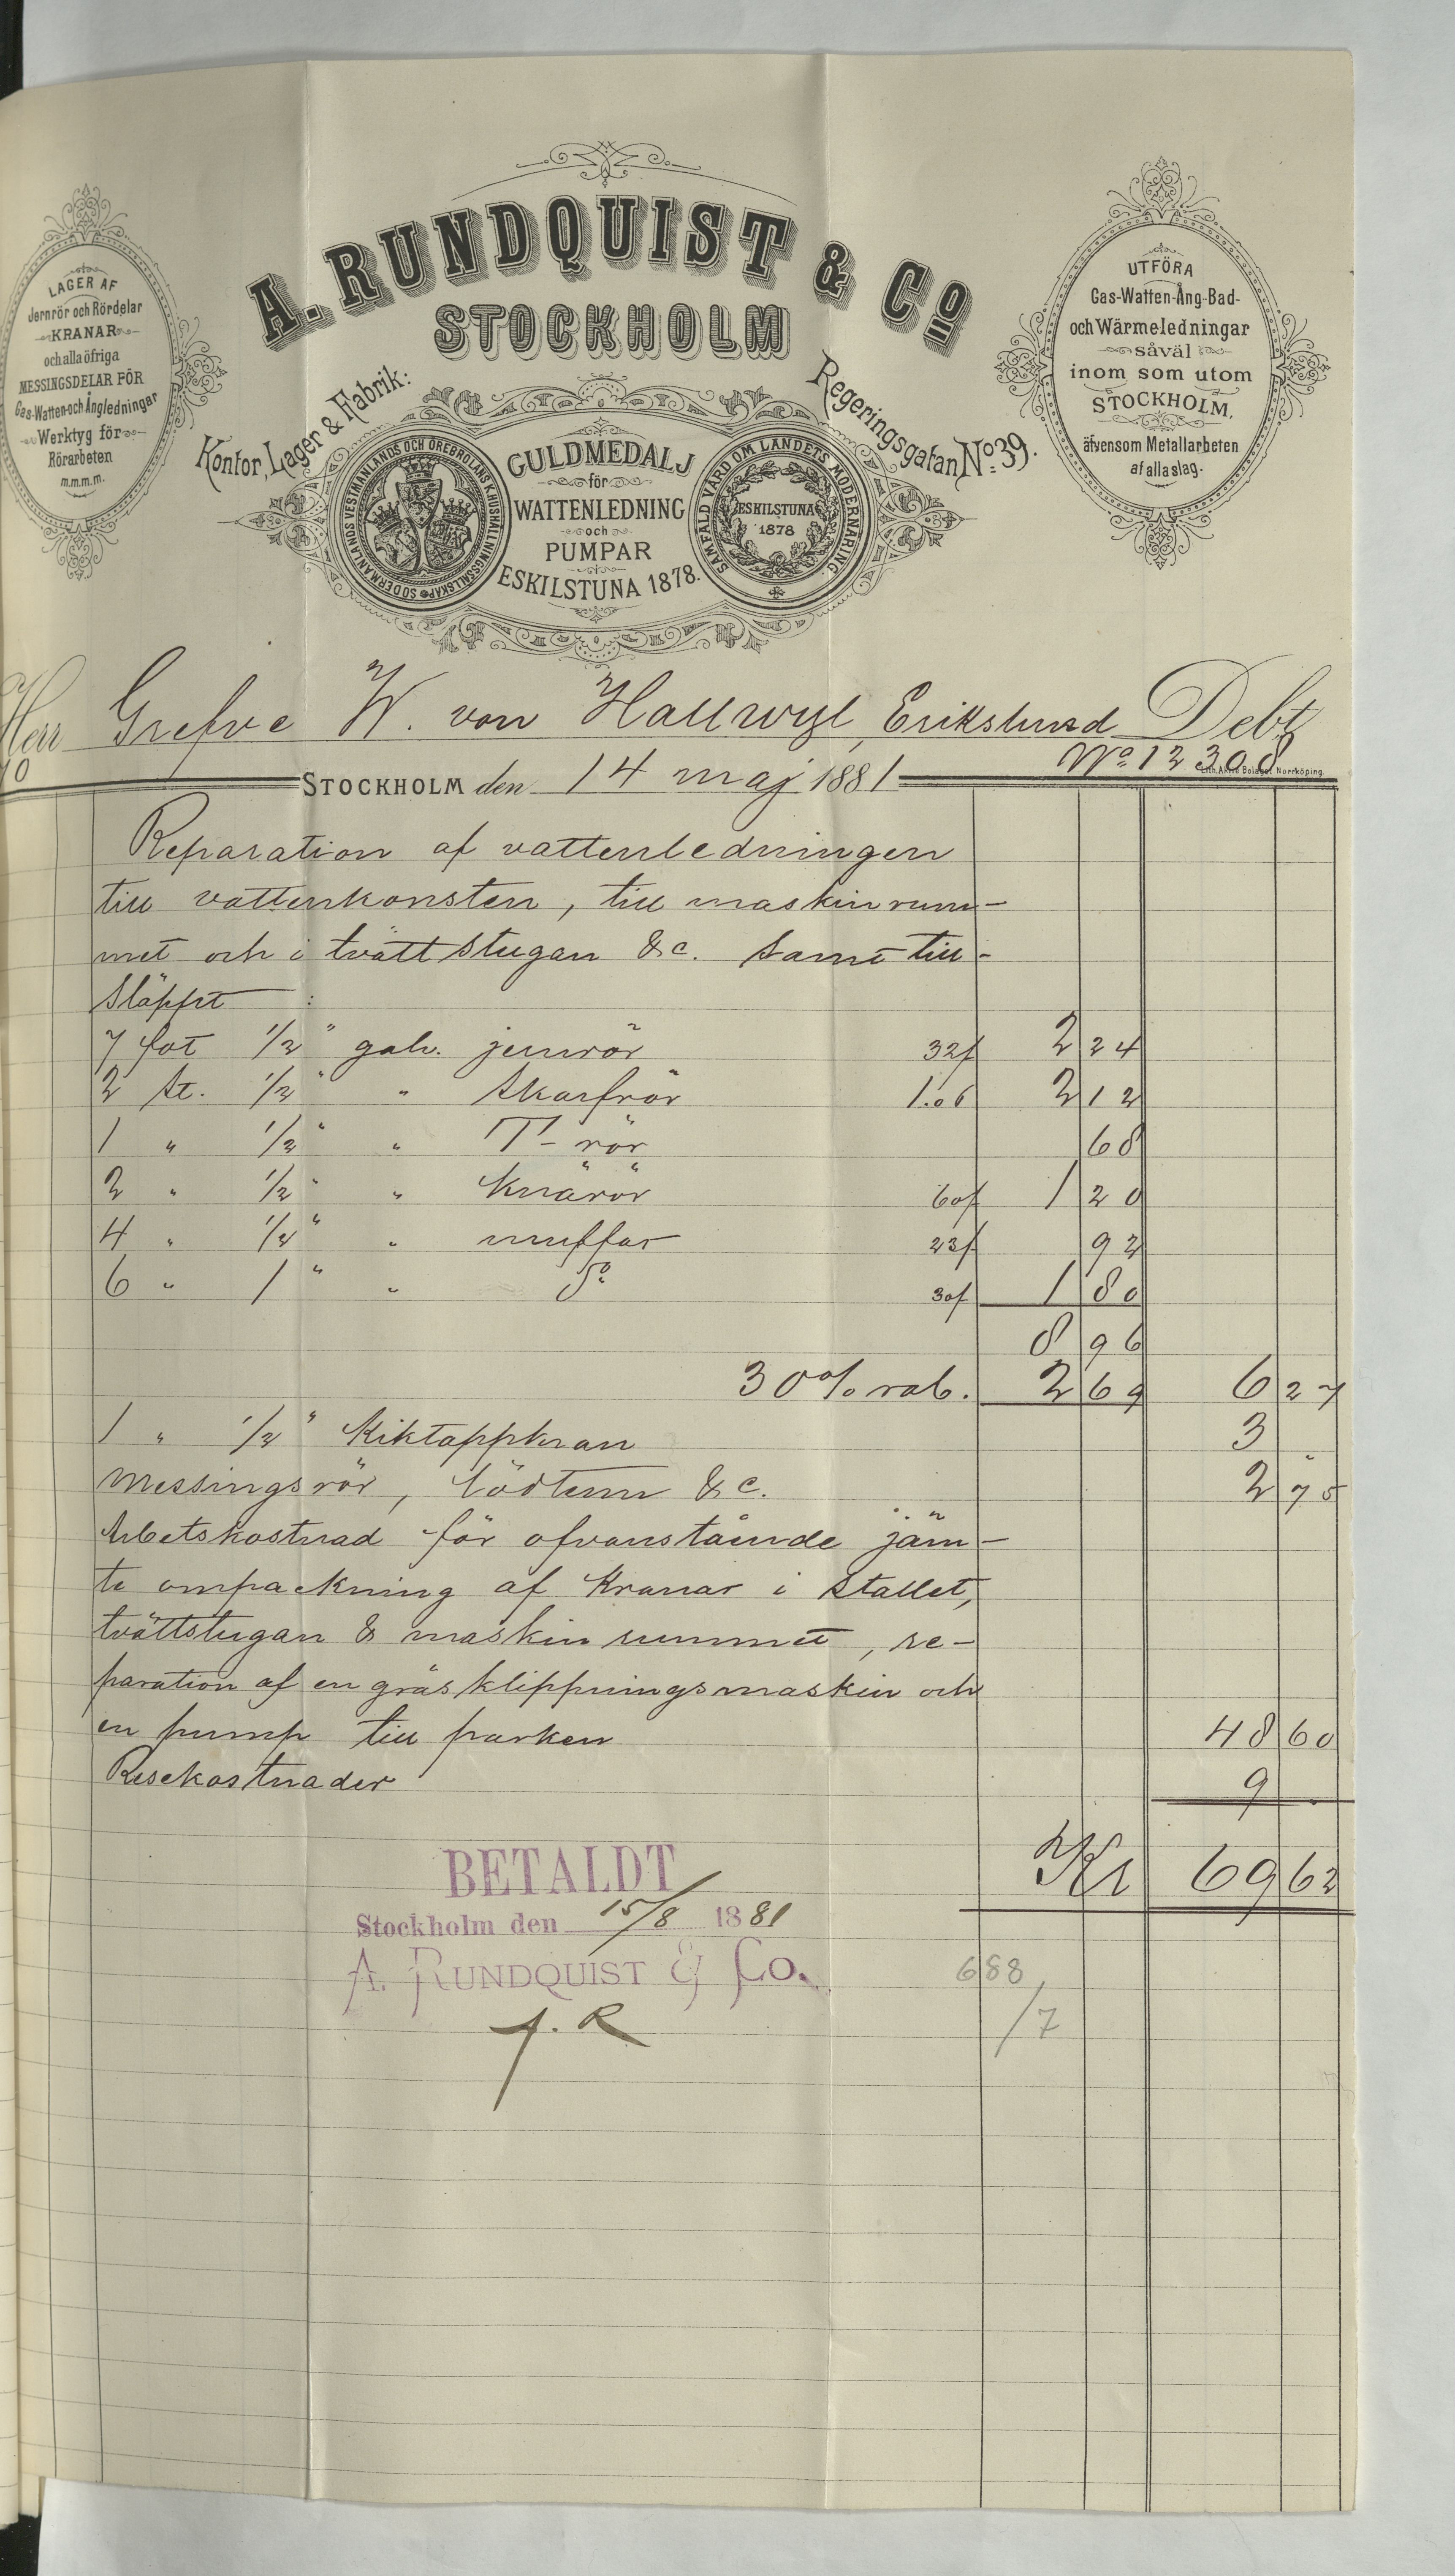 A. RUNDQUIST & Co
STOCKHOLM
Kontor, Lager & Fabrik:
Regeringsgatan No 39.
LAGER AF
Jernrör och Rördelar
KRANAR
och alla öfriga
MESSINGSDELAR FÖR
Gas-Watten-och Ångledningar
Werktyg för
Rörarbeten
m.m.m.m.
SÖDERMANLANDS VESTMANLANDS OCH ÖREBRO LÄNS K. HUSHÅLLNINGSSÄLLSKAP
GULDMEDALJ
för
WATTENLEDNING
och
PUMPAR
ESKILSTUNA 1878.
SAMFÄLD VÅRD OM LANDETS MODERNÄRING
ESKILSTUNA
1878
UTFÖRA
Gas-Watten-Ång-Bad-
och Wärmeledningar
såväl
inom som utom
STOCKHOLM,
äfvensom Metallarbeten
af alla slag.
Herr Grefve W. von Hallwyl, Erikslund Debt
No 12308
Lith. Aktie Bolaget Norrköping
10
STOCKHOLM den 14 maj 1881
Reparation af vattenledningen
till vattenkonsten, till maskinrum-
met och i tvättstugan &c. samt till-
släppt :
7 fot 1/2" galv. jernrör 32f 2 24
2 st. 1/2" " skarfrör 1.06 2 12
1 " 1/2" " T-rör 68
2 " 1/2" " knärör 60f 1 20
4 " 1/2" " muffar 23f 92
6 " 1" " Do 30f 1 80
8 96
30% rab. 2 69 6 27
1 " 1/2" kiktappkran 3 -
Messingsrör, lödtenn &c. 2 75
Arbetskostnad för ofvanstående jäm-
te ompackning af kranar i stallet,
tvättstugan & maskinrummet, re-
paration af en gräsklippningsmaskin och
en pump till parken 48 60
Resekostnader 9 .
Kr 69 62
BETALDT
Stockholm den 15/8 1881
A. RUNDQUIST & Co.
A. R
688
/7